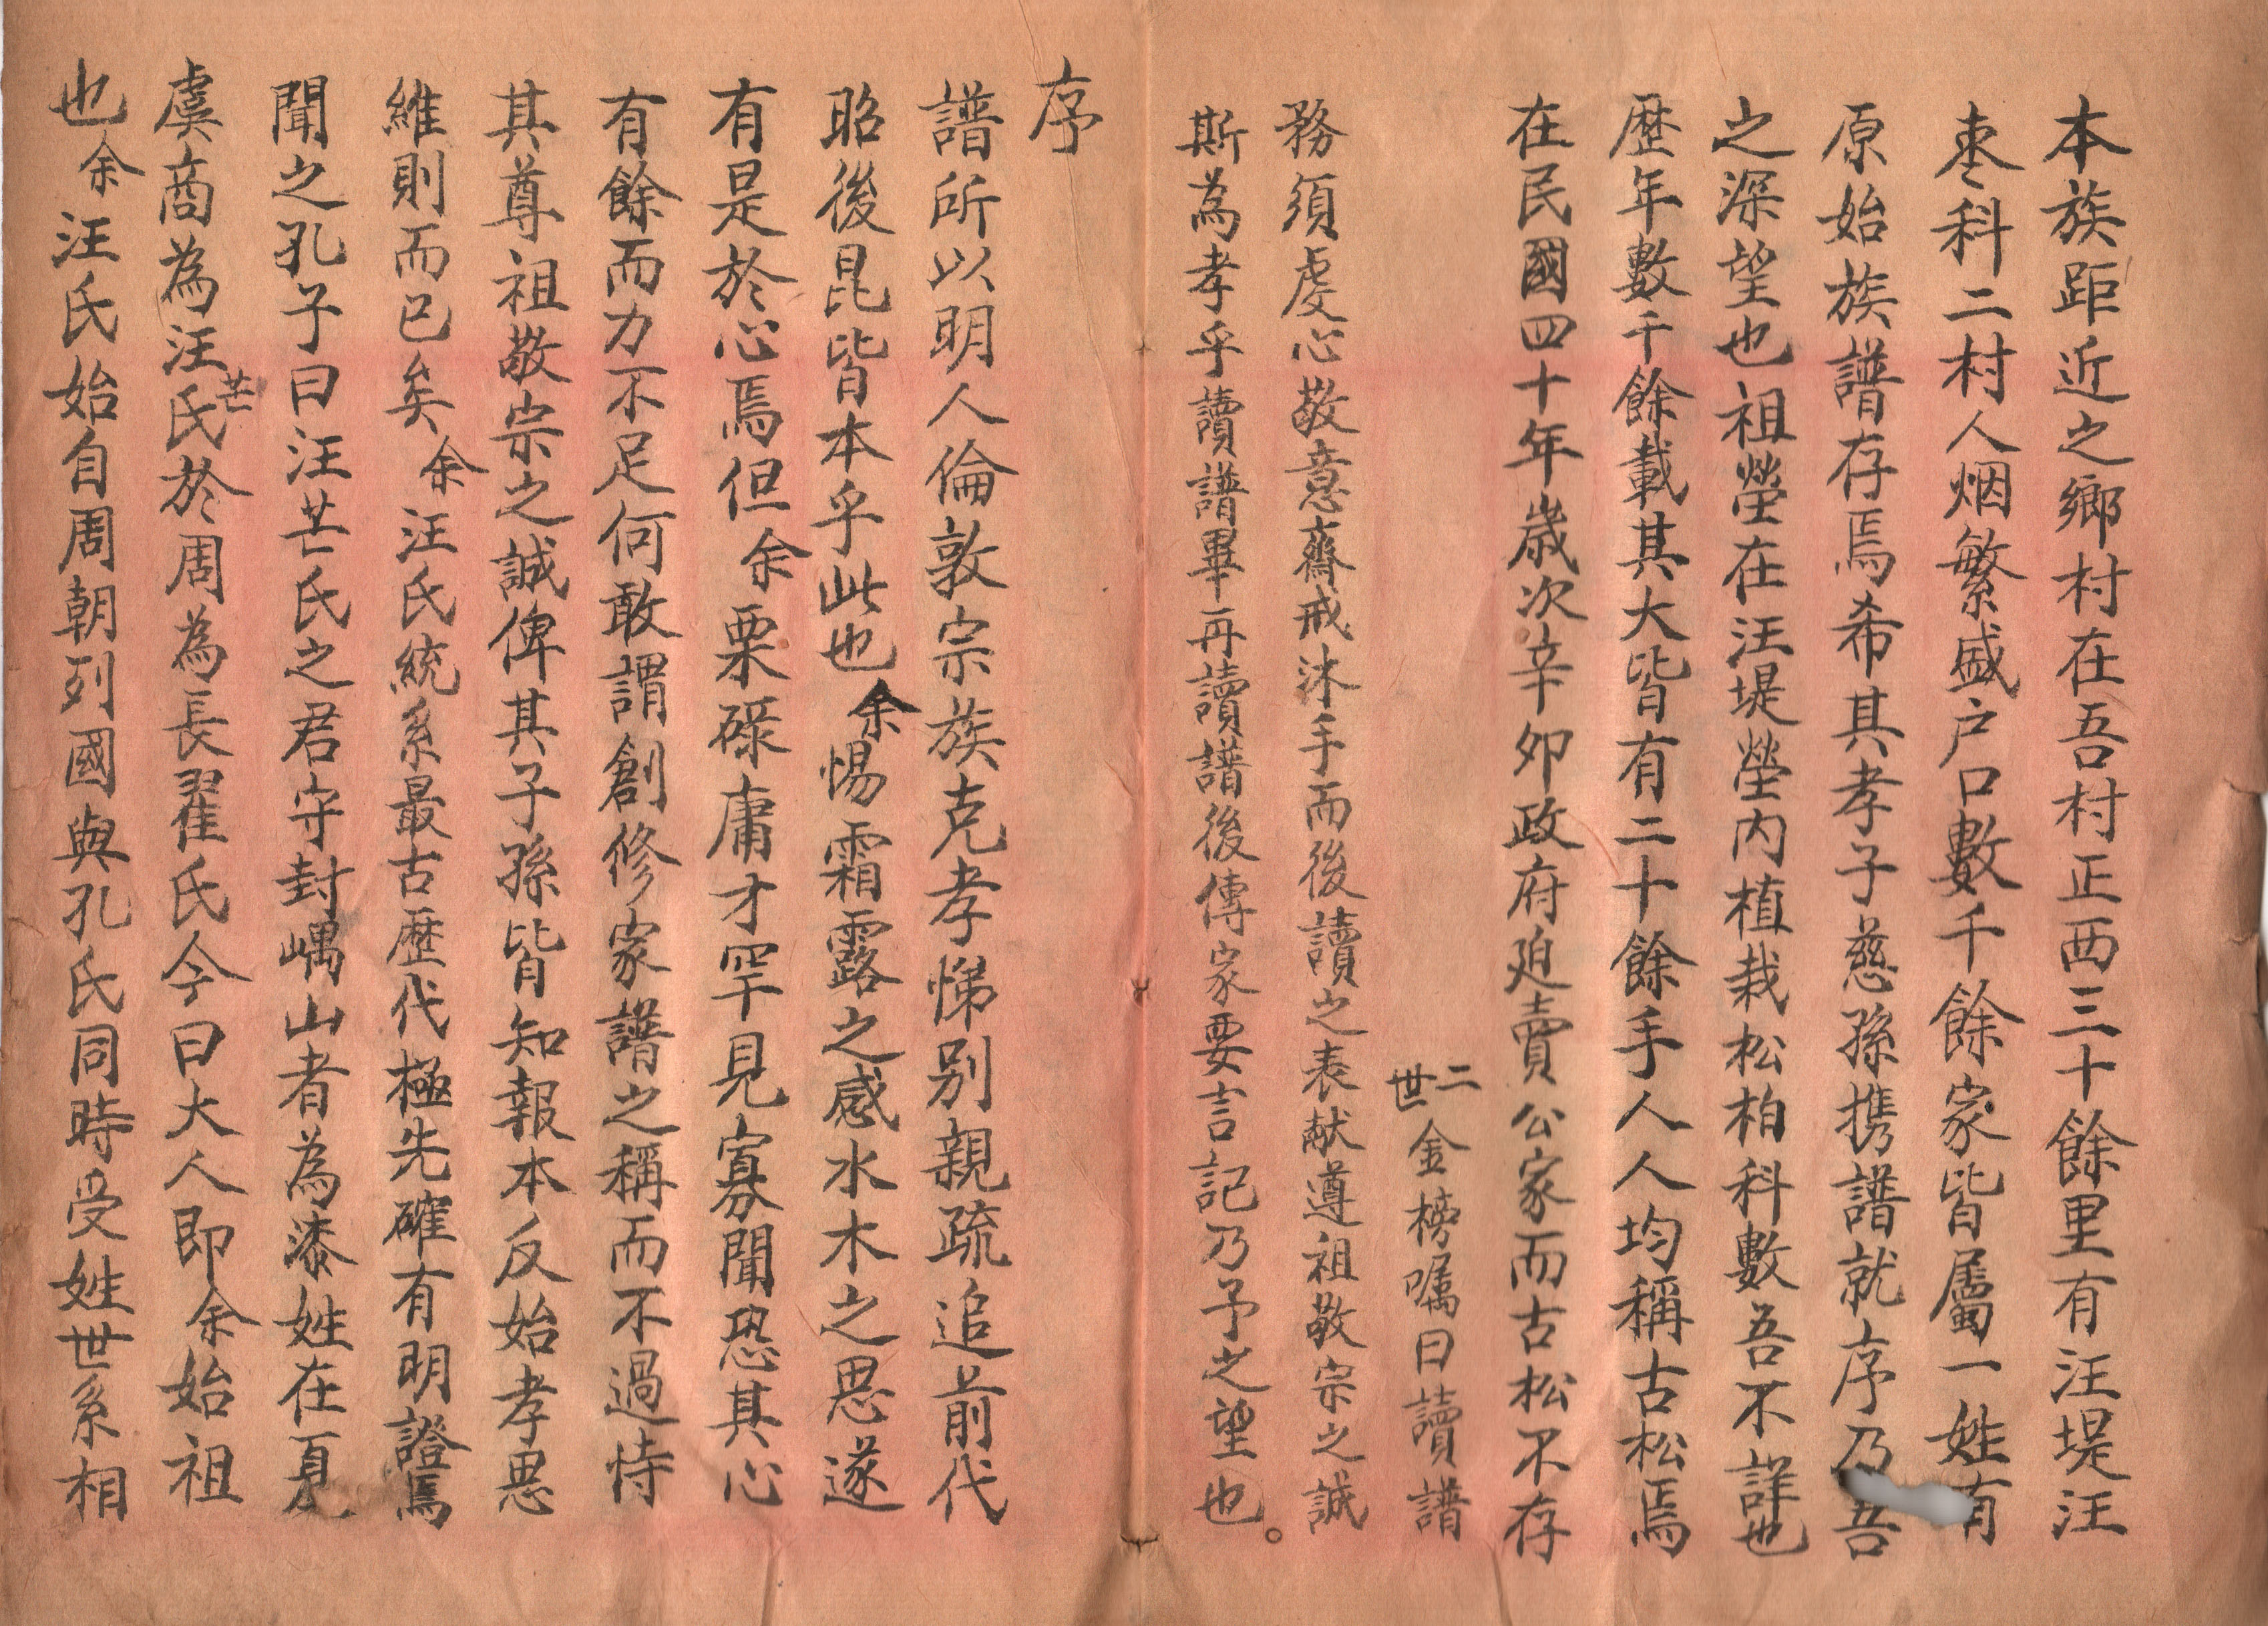 本族距近之鄉村在吾村正西三十餘里有汪堤汪
枣科二村人烟繁盛户口數千餘家皆屬一姓有
原始族譜存焉希其孝子慈孫携譜就序乃吾
之深望也祖塋在汪堤塋内植栽松柏科數吾不詳也
歷年數千餘載其大皆有二十餘手人人均稱古松焉
在民國四十年歲次辛卯政府廹賣公家而古松不存
二世金榜嘱曰讀譜
務須虔心敬意齋戒沐手而後讀之表献遵祖敬宗之誠
斯為孝乎讀譜畢再讀譜後傳家要言記乃予之望也。
序
譜所以明人倫敦宗族克孝悌别親疏追前代
昭後昆皆本乎此也余惕霜露之感水木之思遂
有是於心焉但余栗碌庸才罕見寡聞恐其心
有餘而力不足何敢謂創修家譜之稱而不過恃
其尊祖敬宗之誠俾其子孫皆知報本反始孝思
維則而已矣余汪氏統系最古歷代極先確有明證焉
聞之孔子曰汪芒氏之君守封嵎山者為漆姓在夏
虞商為汪芒氏於周為長翟氏今曰大人即余始祖
也余汪氏始自周朝列國與孔氏同時受姓世系相